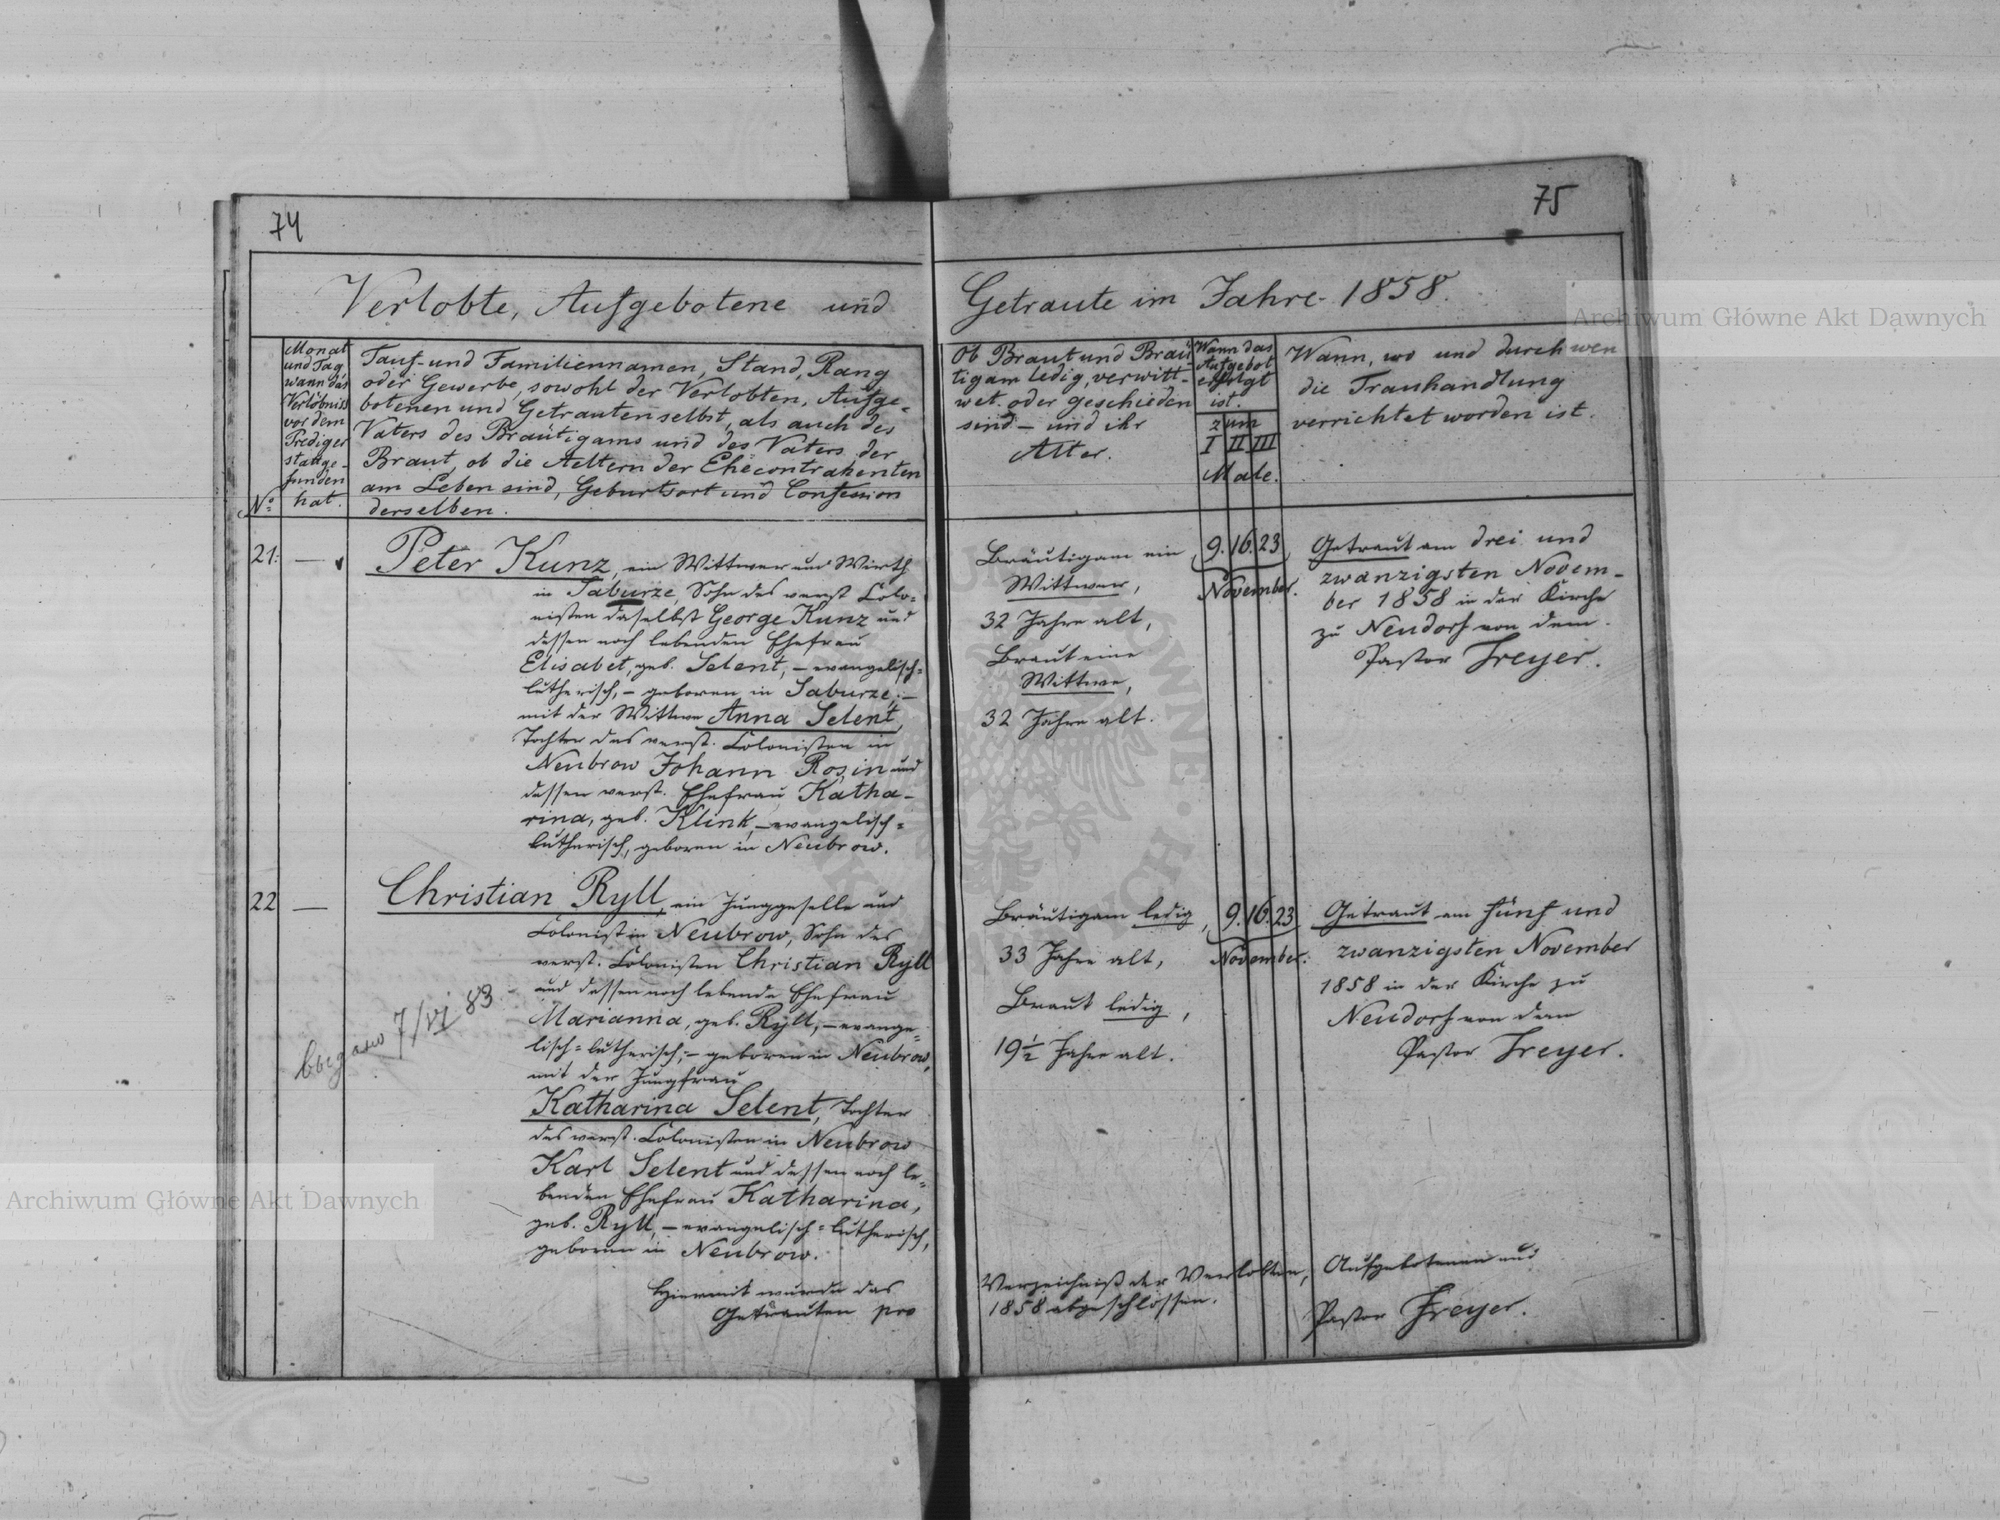 74
75
Verlobte, Aufgebotene und
Getraute im Jahre 1858.
Archiwum Główne Akt Dawnych
No
Monat
und Tag
wann das
Verlöbniss
vor dem
Prediger
stattge-
funden
hat.
Tauf- und Familiennamen, Stand, Rang
oder Gewerbe, sowohl der Verlobten, Aufge-
botenen und Getrauten selbst, als auch des
Vaters des Bräutigams und des Vaters der
Braut, ob die Aeltern der Ehecontrahenten
am Leben sind, Geburtsort und Confession
derselben.
Ob Braut und Bräu-
tigam ledig, verwitt-
wet oder geschieden
sind - und ihr
Alter.
Wann das
Aufgebot
erfolgt
ist.
zum
I II III
Male.
Wann, wo und durch wen
die Trauhandlung
verrichtet worden ist.
21. —
Peter Kunz, ein Wittwer und Wirth
in Saburze, Sohn des verst. Colo-
nisten daselbst George Kunz und
dessen noch lebenden Ehefrau
Elisabet, geb. Selent, - evangelisch-
lutherisch, - geboren in Saburze; -
mit der Wittwe Anna Selent,
Tochter des verst. Colonisten in
Neubrow Johann Rosin und
dessen verst. Ehefrau Katha-
rina, geb. Klink, - evangelisch-
lutherisch, geboren in Neubrow.
Bräutigam ein
Wittwer,
32 Jahre alt,
Braut eine
Wittwe,
32 Jahre alt.
9. 16. 23
November.
Getraut am drei und
zwanzigsten Novem-
ber 1858 in der Kirche
zu Neudorf von dem
Pastor Freyer.
22 —
Christian Ryll, ein Junggeselle und
Colonist in Neubrow, Sohn des
verst. Colonisten Christian Ryll
und dessen noch lebende Ehefrau
Marianna, geb. Ryll, - evange-
lisch-lutherisch, - geboren in Neubrow,
mit der Jungfrau
Katharina Selent, Tochter
des verst. Colonisten in Neubrow
Karl Selent und dessen noch le-
benden Ehefrau Katharina,
geb. Ryll, - evangelisch-lutherisch,
geboren in Neubrow.
выдано 7/VI 83
Bräutigam ledig,
33 Jahre alt,
Braut ledig,
19 1/2 Jahre alt.
9. 16. 23
November.
Getraut am fünf und
zwanzigsten November
1858 in der Kirche zu
Neudorf von dem
Pastor Freyer.
Hiermit wurde das
Verzeichniß der Verlobten, Aufgebotenen und
Getrauten pro
1858 abgeschlossen.
Pastor Freyer.
Archiwum Główne Akt Dawnych